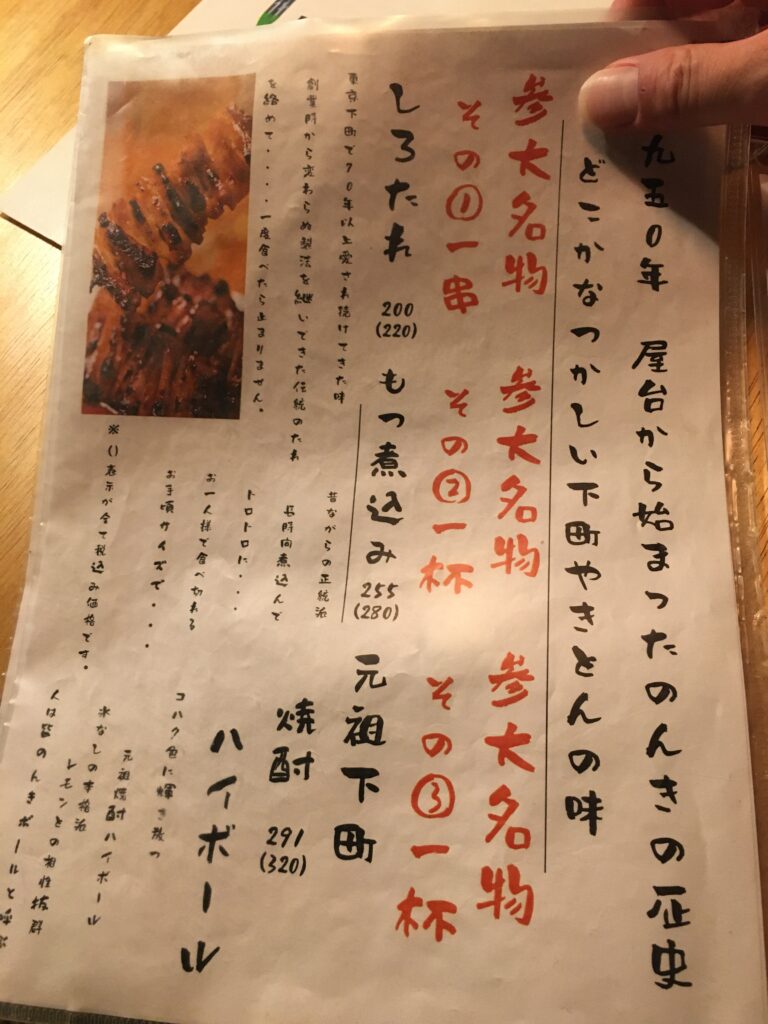 九五0年 屋台から始まつたのんきの歴史
どこかなつかしい下町やきとんの味
参大名物
その①一串
しろたれ
200
(220)
東京下町で70年以上愛され続けてきた味
創業時から変わらぬ製法を継いできた伝統のたれ
を絡めて・・・・一度食べたら止まりません。
参大名物
その②一杯
もつ煮込み
255
(280)
昔ながらの正統派
長時間煮込んで
トロトロに・・・
お一人様で食べ切れる
お手頃サイズで・・・
※()表示が全て税込み価格です。
参大名物
その③一杯
元祖下町
焼酎
291
(320)
ハイボール
コハク色に輝き放つ
元祖焼酎ハイボール
氷なしの本格派
レモンとの相性抜群
人は皆のんきボールと呼